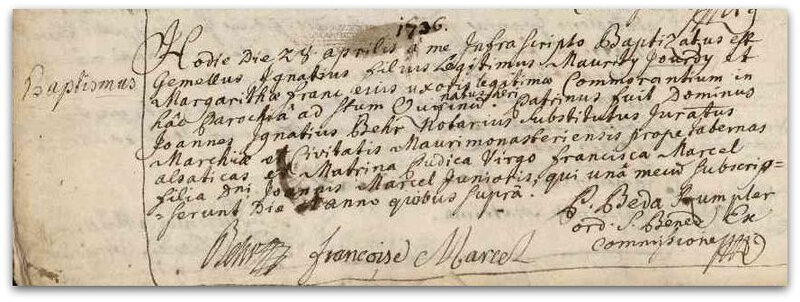 1736.
Baptismus
Hodie Die 28 aprilis à me Infrascripto Baptizatus est
Gemellus Ignatius filius legitimus Maurity Jourdy et
Margarithæ franc eius uxoris legitimæ Commorantium in
hâc Parochiâ ad Stum Quirinū. natus heri Patrinus fuit Dominus
Joannes Ignatius Behr Notarius Substitutus Juratus
Marchiæ et Civitatis Maurimonasteriensis prope tabernas
alsaticas et Matrina Pudica Virgo francisca Marcel
filia Dni Joannis Marcel Junioris, qui unà mecū subscrip=
=serunt Die et anno quibus suprà.
P. Beda
ord. S. Bened. Ex
Commissione
Behr françoise Marcel